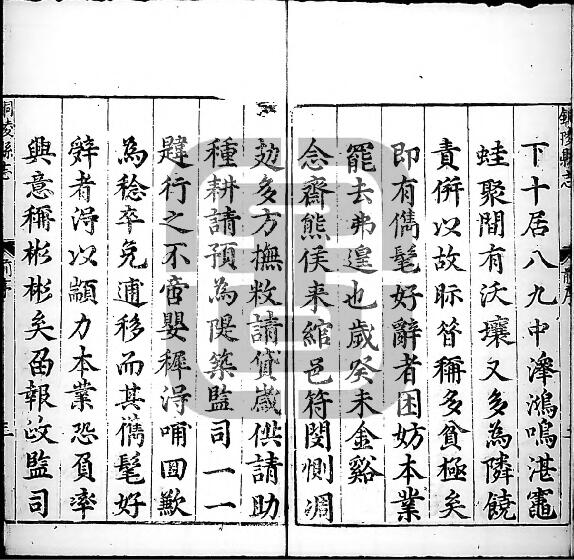 銅陵縣志
下十居八九中澤鴻嗚湛竈
蛙聚間有沃壤又多為隣饒
責併以故眎昔稱多貧極矣
即有儁髦好辭者困妨本業
罷去弗遑也歲癸未金谿
念齋熊侯来綰邑符閔惻凋
攰多方撫敉請貸歲供請助
種耕請預為隄築監司一一
韙行之不啻嬰穉淂哺囬歉
為稔卒免逋移而其儁髦好
辤者淂以顓力本業恐負率
興意稱彬彬矣畱報政監司
銅陵縣志
前序
三